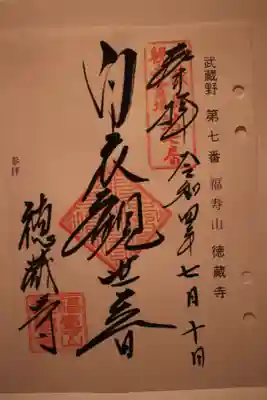 武蔵野 第七番 福寿山 徳蔵寺
奉拝 令和四年七月十日
白衣観世音
徳蔵寺